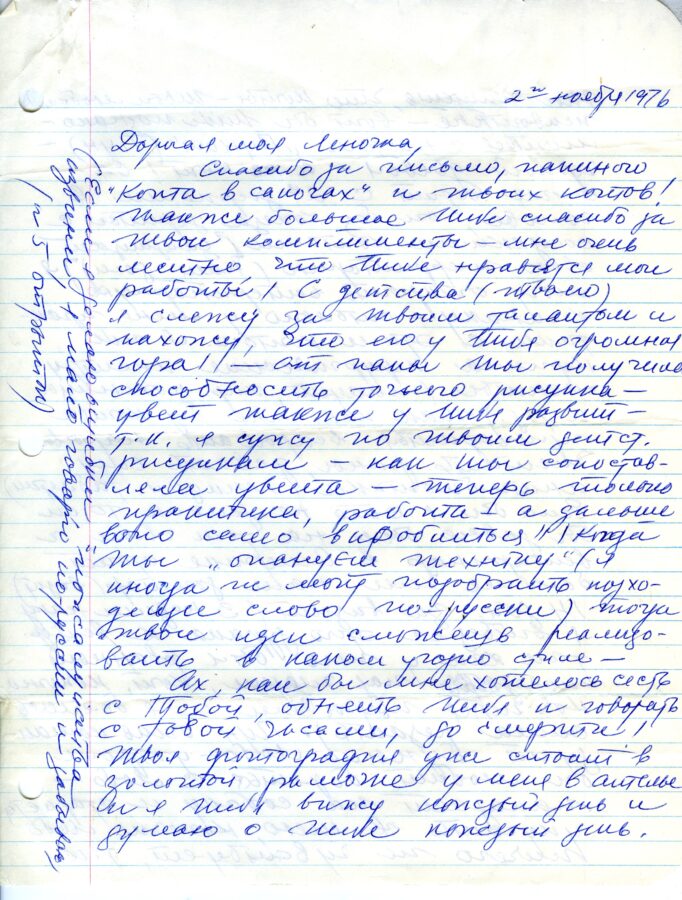 2го ноября 1976
Дорогая моя Леночка,
Спасибо за письмо, папиного
"Кота в сапогах" и твоих котов!
Также большое Тибе спасибо за
твои комплименты – мне очень
лестно что Тибе нравятся мои
работы! С детства (твоего)
я слежу за твоим талантом и
нахожу, что его у Тибя огромная
гора! – от папы Ты получила
способность точного рисунка –
цвет также у Тибя развит –
т.к. я сужу по твоим детст.
рисункам – как Ты сопостав-
ляла цвета – теперь только
практика, работа – а дальше
само виробиться!!! Когда
Ты „опануеш технику" (я
иногда не могу подобрать подхо-
дящее слово по-русски) тогда
твои идеи сможешь реализо-
вать в каком угодно стиле –
Ах, как бы мне хотелось сесть
с Тобой, обнять Тибя и говорить
с Товой часами, до смерти!
Твоя фотография уже стоит в
золотой раможе у меня в ателье
и я Тибя вижу каждый день и
думаю о Тибе каждый день.
(Если я делаю ошибки – пожалуйста
извини, я мало говорю по-русски и забываю)
(n 5 открыток)